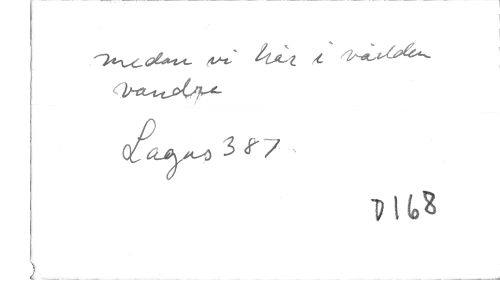 medan vi här i världen
vandra
Lagus 387.
D168